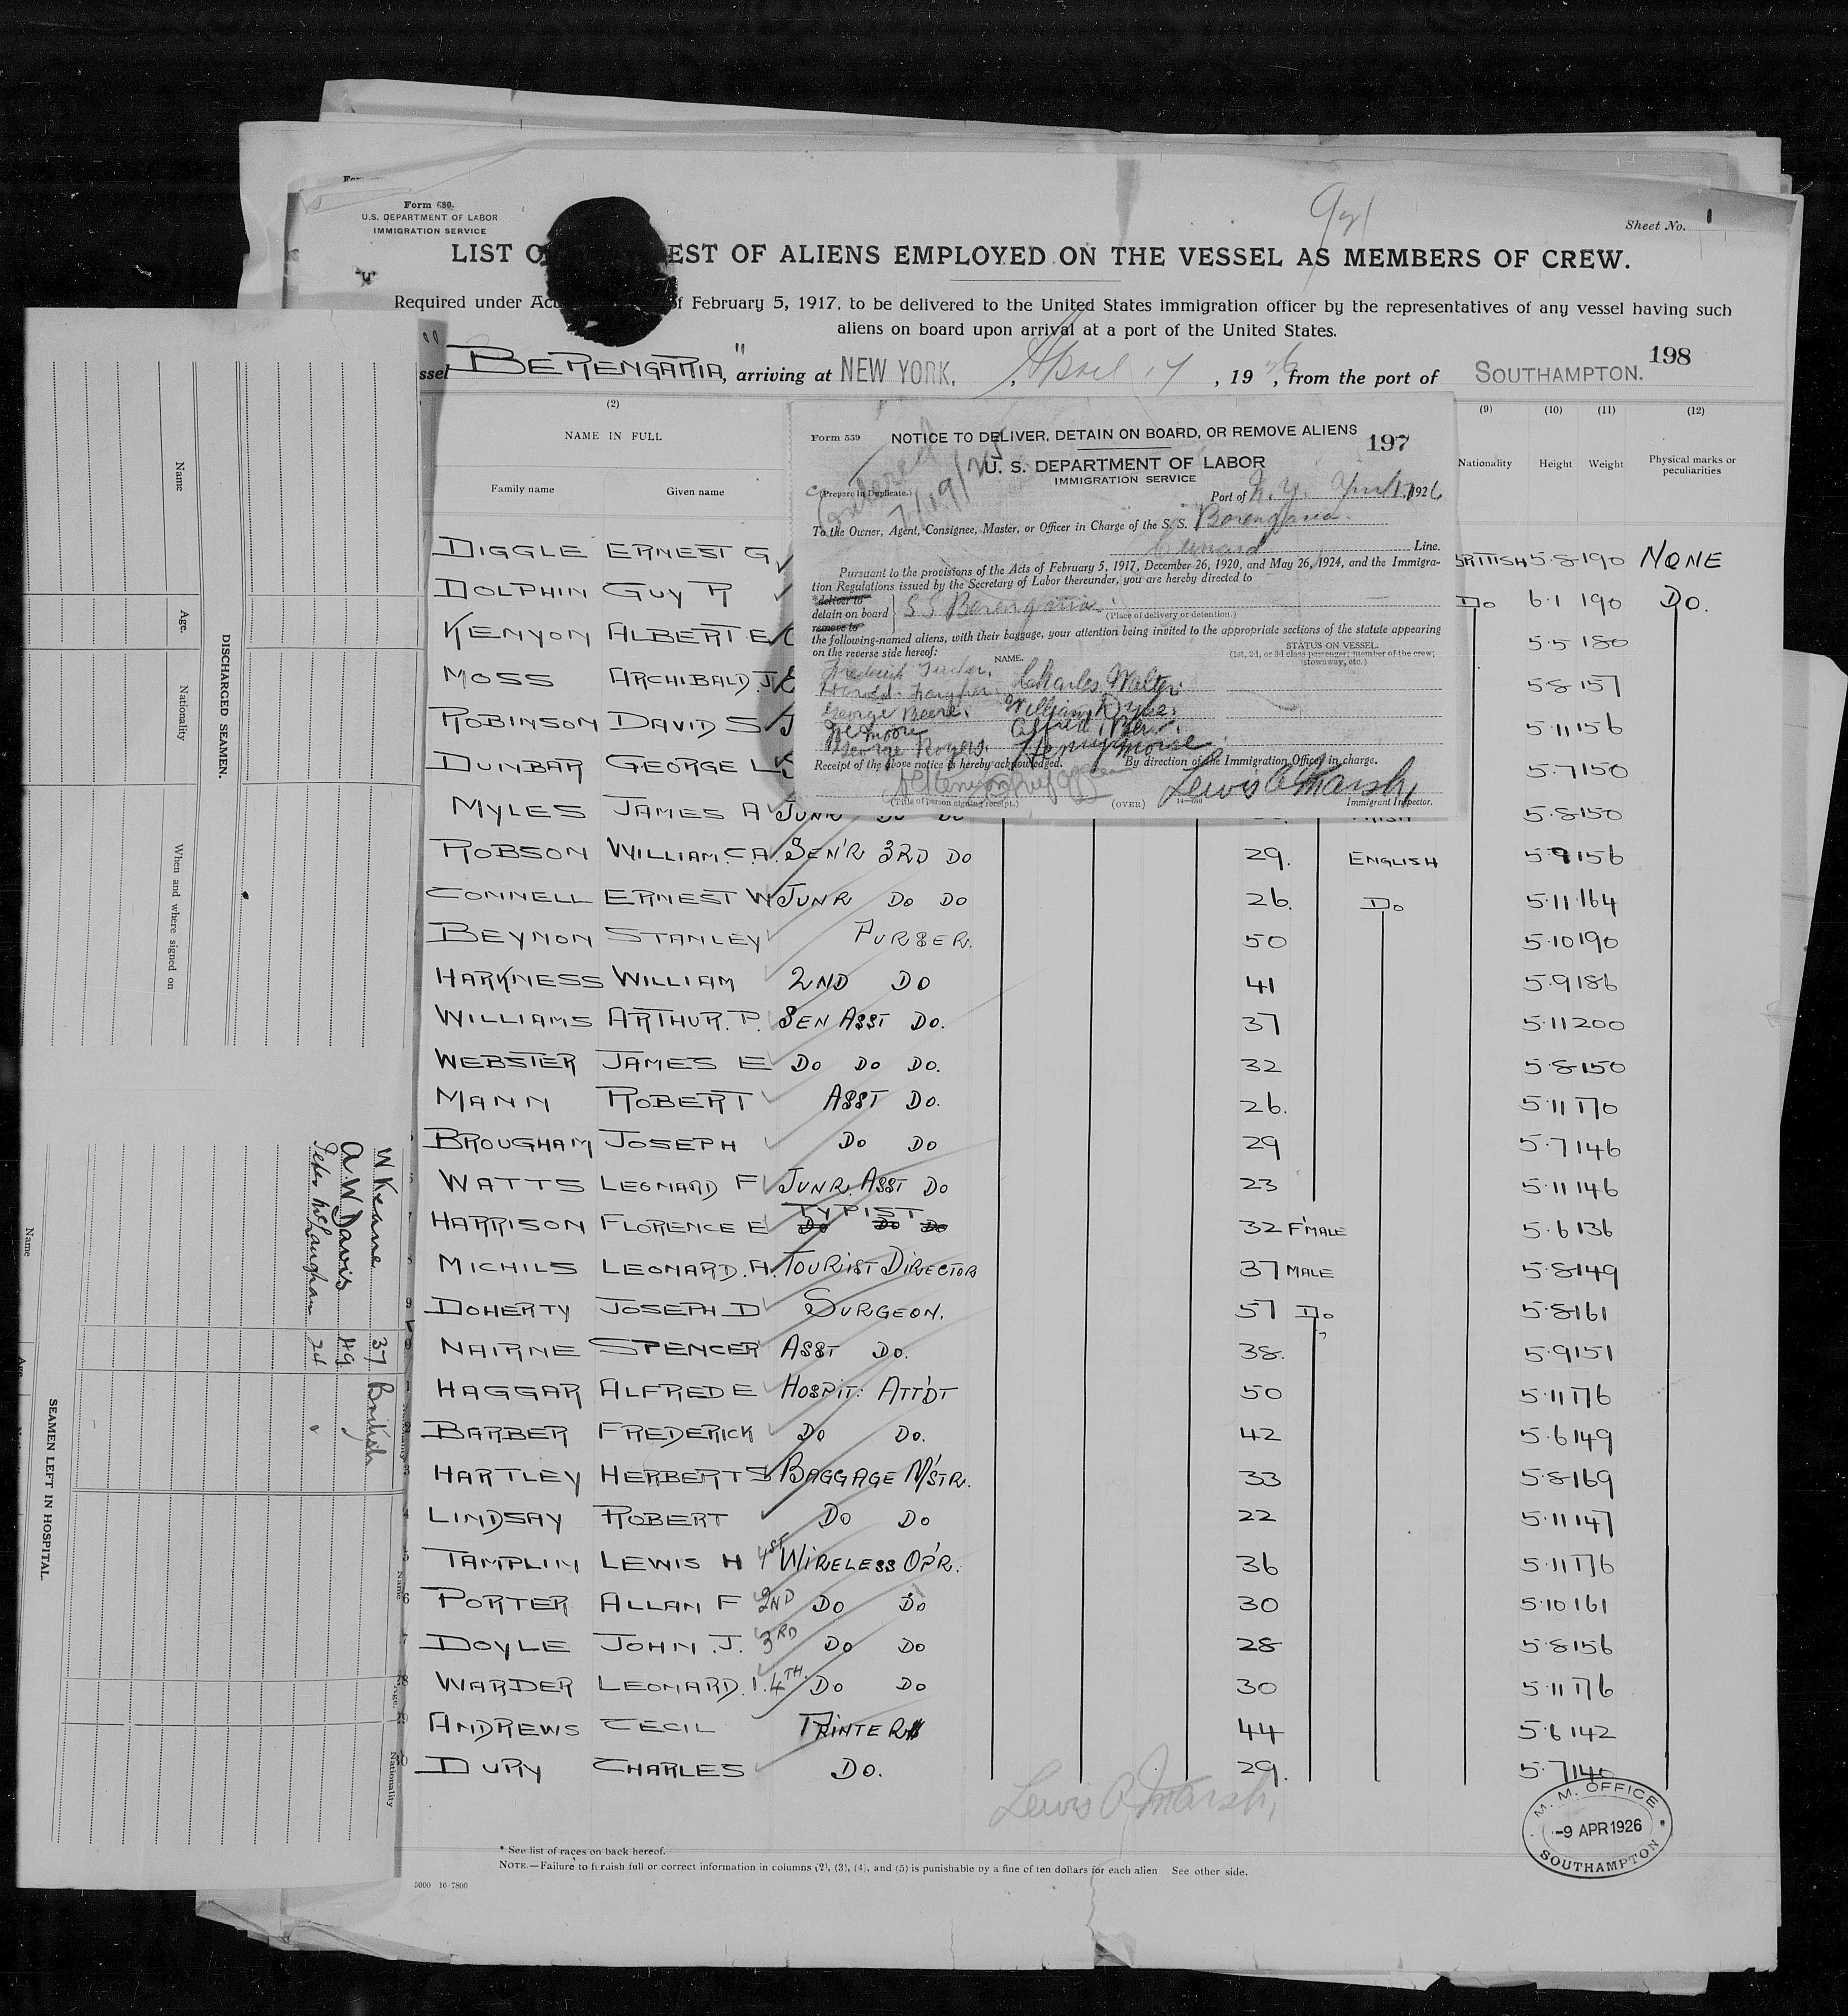 Form 680.
U.S. DEPARTMENT OF LABOR
IMMIGRATION SERVICE
Sheet No. 1
LIST O EST OF ALIENS EMPLOYED ON THE VESSEL AS MEMBERS OF CREW.
Required under Ac f February 5, 1917, to be delivered to the United States immigration officer by the representatives of any vessel having such
aliens on board upon arrival at a port of the United States.
ssel BERENGARIA", arriving at NEW YORK. , April 17, 1926, from the port of SOUTHAMPTON. 198
(2) (9) (10) (11) (12)
NAME IN FULL Nationality Height Weight Physical marks or
peculiarities
Family name Given name
Form 559 NOTICE TO DELIVER, DETAIN ON BOARD, OR REMOVE ALIENS 197
U. S. DEPARTMENT OF LABOR
IMMIGRATION SERVICE
(Prepare in Duplicate.) Port of N.Y. April 17, 1926
To the Owner, Agent, Consignee, Master, or Officer in Charge of the S. S. Berengaria.
Cunard Line.
Pursuant to the provisions of the Acts of February 5, 1917, December 26, 1920, and May 26, 1924, and the Immigra-
tion Regulations issued by the Secretary of Labor thereunder, you are hereby directed to
*deliver to
detain on board SS Berengaria.
(Place of delivery or detention.)
remove to
the following-named aliens, with their baggage, your attention being invited to the appropriate sections of the statute appearing
on the reverse side hereof:
NAME. STATUS ON VESSEL.
(1st, 2d, or 3d class passenger; member of the crew;
stowaway, etc.)
Frederick Tucker. Charles Walter.
Harold
George Beere. William Dyke.
Joe Moore Alfred
George Rogers. Henry Morse.
Receipt of the above notice is hereby acknowledged. By direction of the Immigration Officer in charge.
Lewis A Marsh,
(Title of person signing receipt.) (OVER) 14—660 Immigrant Inspector.
DIGGLE ERNEST G BRITISH 5.8 190 NONE
DOLPHIN GUY R DO 6.1 190 DO.
KENYON ALBERT E 5.5 180
MOSS ARCHIBALD. J. 5.8 157
ROBINSON DAVID S 5.11 156
DUNBAR GEORGE L 5.7 150
MYLES JAMES A JUNR DO DO 5.8 150
ROBSON WILLIAM. C.A. SEN'R 3RD DO 29. ENGLISH 5.9 156
CONNELL ERNEST W JUNR DO DO 26. DO 5.11 164
BEYNON STANLEY PURSER. 50 5.10 190
HARKNESS WILLIAM 2ND DO 41 5.9 186
WILLIAMS ARTHUR. P. SEN ASST DO. 37 5.11 200
WEBSTER JAMES E DO DO DO. 32 5.8 150
MANN ROBERT ASST DO. 26. 5.11 170
BROUGHAM JOSEPH DO DO 29 5.7 146
WATTS LEONARD F JUNR. ASST DO 23 5.11 146
HARRISON FLORENCE E TYPIST DO DO DO 32 F'MALE 5.6 136
MICHILS LEONARD. A. TOURIST DIRECTOR 37 MALE 5.8 149
DOHERTY JOSEPH D SURGEON. 57 DO 5.8 161
NAIRNE SPENCER ASST DO. 38. 5.9 151
HAGGAR ALFRED E HOSPIT: ATT'DT 50 5.11 176
BARBER FREDERICK DO DO. 42 5.6 149
HARTLEY HERBERT S BAGGAGE M'STR. 33 5.8 169
LINDSAY ROBERT DO DO 22 5.11 147
TAMPLIN LEWIS H 1ST WIRELESS OP'R. 36 5.11 176
PORTER ALLAN F 2ND DO DO 30 5.10 161
DOYLE JOHN. J. 3RD DO DO 28 5.8 156
WARDER LEONARD. I. 4TH. DO DO 30 5.11 176
ANDREWS CECIL PRINTER 44 5.6 142
DURY CHARLES DO. 29. 5.7 140
Lewis A Marsh,
M. M. OFFICE
-9 APR 1926
SOUTHAMPTON
* See list of races on back hereof.
NOTE.—Failure to furnish full or correct information in columns (2), (3), (4), and (5) is punishable by a fine of ten dollars for each alien See other side.
5000 16-7800
DISCHARGED SEAMEN.
Name Age. Nationality When and where signed on
SEAMEN LEFT IN HOSPITAL.
Name Age Nationality
W Keane 37 British
A. W Davis 49
Peter McLaugham 24